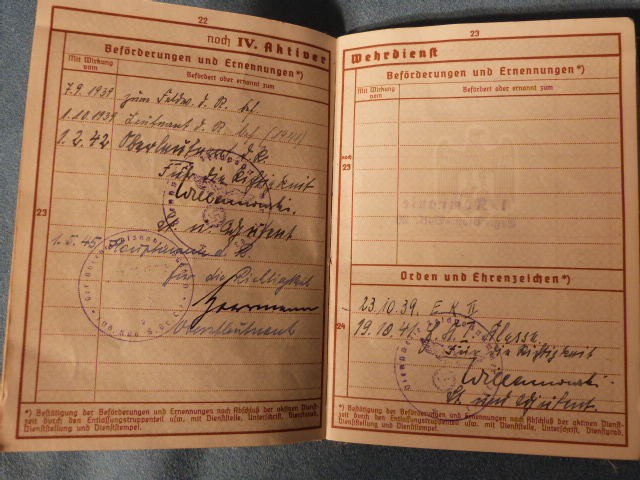 22
noch IV. Aktiver
Beförderungen und Ernennungen*)
Mit Wirkung vom
Befördert oder ernannt zum
7.9.1939 zum Feldw. d. R. bef.
1.10.1939 Leutnant d. R. bef. (1941)
1.2.42 Oberleutnant d. R.
Für die Richtigkeit
Lt. u. Adjutant
23
1.5.45 Hauptmann d. R.
für die Richtigkeit
Oberstleutnant
*) Bestätigung der Beförderungen und Ernennungen nach Abschluß der aktiven Dienst-
zeit durch den Entlassungstruppenteil usw. mit Dienststelle, Unterschrift, Dienstgrad,
Dienststellung und Dienststempel.
23
Wehrdienst
Beförderungen und Ernennungen*)
Mit Wirkung vom
Befördert oder ernannt zum
noch
23
Orden und Ehrenzeichen*)
23.10.39. E K II
24
19.10.41 Klasse
Für die Richtigkeit
Lt. und Adjutant.
*) Bestätigung der Beförderungen und Ernennungen nach Abschluß der aktiven Dienst-
zeit durch den Entlassungstruppenteil usw. mit Dienststelle, Unterschrift, Dienstgrad,
Dienststellung und Dienststempel.